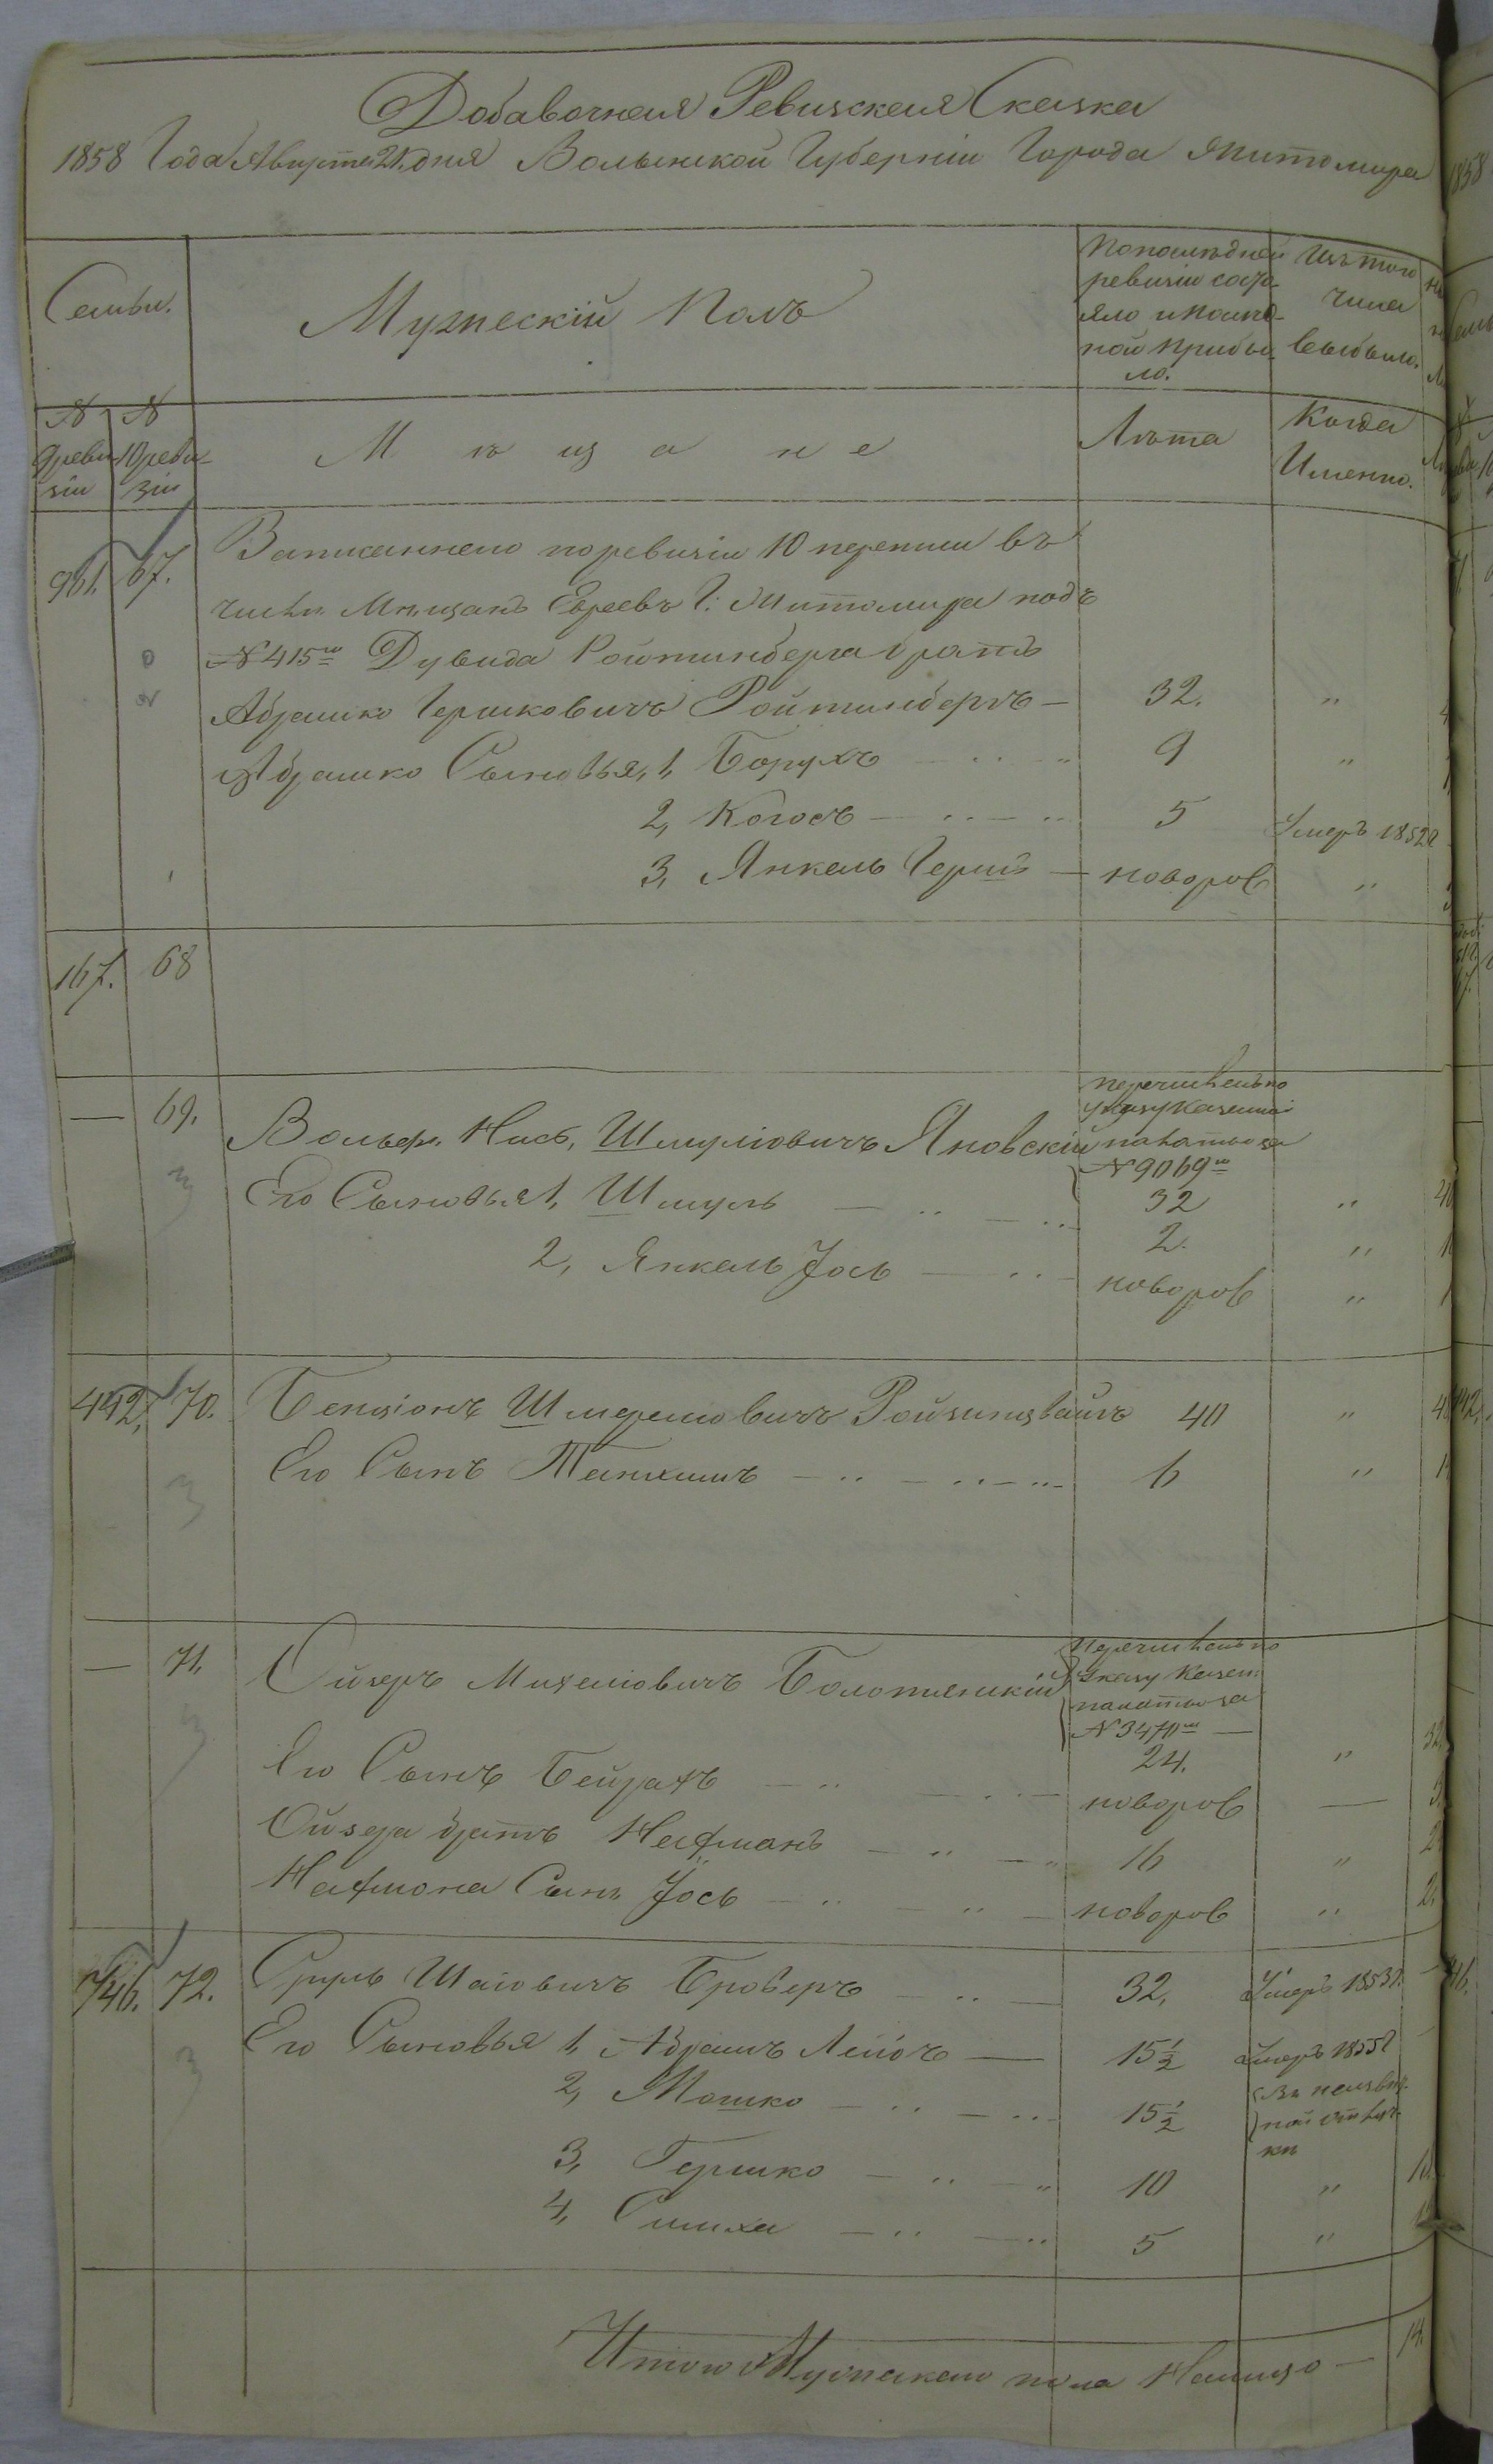 Добавочная Ревизская Сказка
1858 Года Августа 21. дня Волынской Губерніи Города Житомира
Семьи.
Мужескій Полъ
По послѣдней
ревизіи состо-
яло и послѣ
ной прибы-
ло.
Изъ того
числа
выбыло.
№ №
9 реви- 10 реви-
зіи зіи
Мѣщане
Лѣта
Когда
Именно.
961. 67. Записаннаго по ревизіи 10 переписи въ
числѣ Мѣщанъ Евреевъ Г. Житомира подъ
№ 415ᵐ Дувида Ройтинберга братъ
Абрамко Гершковичъ Ройтинбергъ — 32. "
Абрамко Сыновья, 1, Борухъ 9 "
2, Когосъ 5 Умеръ 1852 г
3, Янкель Гершъ — новорож "
167. 68
— 69. Вольф. Нисъ, Шмуліовичъ Яновскій
перечисленъ по
указу Казенной
палаты за
№ 9069ᵐ
32 "
Его Сыновья 1, Шмуль 2. "
2, Янкель Іось новорож "
442. 70. Бенціонъ Шмереловичъ Ройзинцвайгъ 40 "
Его Сынъ Танхимъ 6 "
— 71. Ойзеръ Михеліовичъ Болотянскій
перечисленъ по
Указу Казен.
палаты за
№ 3470ᵐ —
24. "
Его Сынъ Бейрахъ новорож —
Ойзера братъ Нафманъ 16 "
Нафмона Сынъ Іось новорож "
746. 72. Сруль Шаіовичъ Броверъ 32, Умеръ 1853 г.
Его Сыновья 1, Абрамъ Лейбъ — 15½ Умеръ 1855 г
2, Мошко 15½ въ неизвѣст-
ной отлуч-
кѣ
3, Гершко 10 "
4, Симха 5 "
Итого Мужескаго пола Налицо — 14.